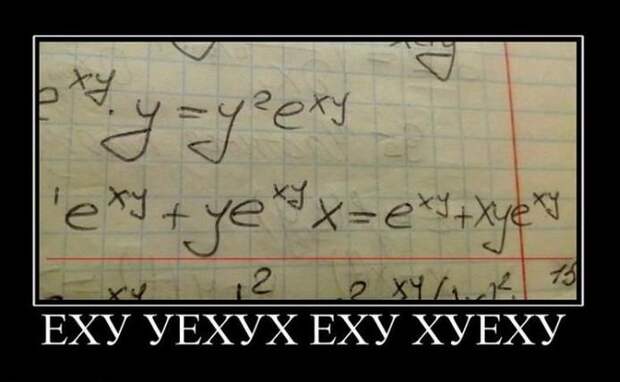 e^{xy}·y = y²e^{xy}
'e^{xy} + ye^{xy}x = e^{xy} + xye^{xy}
ЕХУ УЕХУХ ЕХУ ХУЕХУ